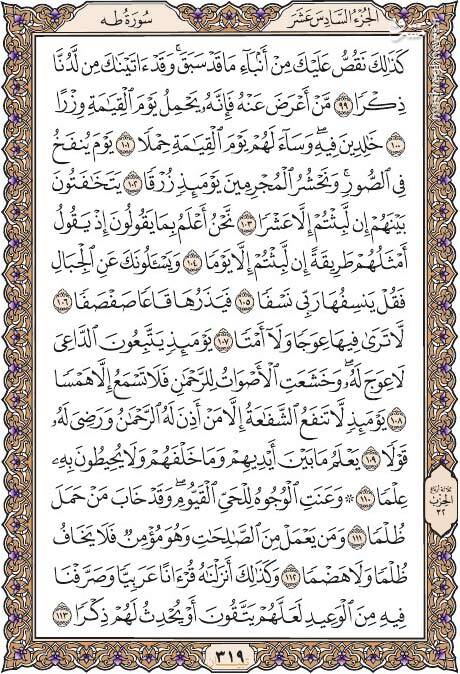 الجزء السادس عشر
سورة طه
كَذَٰلِكَ نَقُصُّ عَلَيْكَ مِنْ أَنۢبَآءِ مَا قَدْ سَبَقَ ۚ وَقَدْ ءَاتَيْنَٰكَ مِن لَّدُنَّا
ذِكْرًا ٩٩ مَّنْ أَعْرَضَ عَنْهُ فَإِنَّهُۥ يَحْمِلُ يَوْمَ ٱلْقِيَٰمَةِ وِزْرًا
١٠٠ خَٰلِدِينَ فِيهِ ۖ وَسَآءَ لَهُمْ يَوْمَ ٱلْقِيَٰمَةِ حِمْلًا ١٠١ يَوْمَ يُنفَخُ
فِى ٱلصُّورِ ۚ وَنَحْشُرُ ٱلْمُجْرِمِينَ يَوْمَئِذٍ زُرْقًا ١٠٢ يَتَخَٰفَتُونَ
بَيْنَهُمْ إِن لَّبِثْتُمْ إِلَّا عَشْرًا ١٠٣ نَّحْنُ أَعْلَمُ بِمَا يَقُولُونَ إِذْ يَقُولُ
أَمْثَلُهُمْ طَرِيقَةً إِن لَّبِثْتُمْ إِلَّا يَوْمًا ١٠٤ وَيَسْـَٔلُونَكَ عَنِ ٱلْجِبَالِ
فَقُلْ يَنسِفُهَا رَبِّى نَسْفًا ١٠٥ فَيَذَرُهَا قَاعًا صَفْصَفًا ١٠٦
لَّا تَرَىٰ فِيهَا عِوَجًا وَلَآ أَمْتًا ١٠٧ يَوْمَئِذٍ يَتَّبِعُونَ ٱلدَّاعِىَ
لَا عِوَجَ لَهُۥ ۖ وَخَشَعَتِ ٱلْأَصْوَاتُ لِلرَّحْمَٰنِ فَلَا تَسْمَعُ إِلَّا هَمْسًا
١٠٨ يَوْمَئِذٍ لَّا تَنفَعُ ٱلشَّفَٰعَةُ إِلَّا مَنْ أَذِنَ لَهُ ٱلرَّحْمَٰنُ وَرَضِىَ لَهُۥ
قَوْلًا ١٠٩ يَعْلَمُ مَا بَيْنَ أَيْدِيهِمْ وَمَا خَلْفَهُمْ وَلَا يُحِيطُونَ بِهِۦ
عِلْمًا ١١٠ ۞ وَعَنَتِ ٱلْوُجُوهُ لِلْحَىِّ ٱلْقَيُّومِ ۖ وَقَدْ خَابَ مَنْ حَمَلَ
ظُلْمًا ١١١ وَمَن يَعْمَلْ مِنَ ٱلصَّٰلِحَٰتِ وَهُوَ مُؤْمِنٌ فَلَا يَخَافُ
ظُلْمًا وَلَا هَضْمًا ١١٢ وَكَذَٰلِكَ أَنزَلْنَٰهُ قُرْءَانًا عَرَبِيًّا وَصَرَّفْنَا
فِيهِ مِنَ ٱلْوَعِيدِ لَعَلَّهُمْ يَتَّقُونَ أَوْ يُحْدِثُ لَهُمْ ذِكْرًا ١١٣
الحزب
٣٢
٣١٩